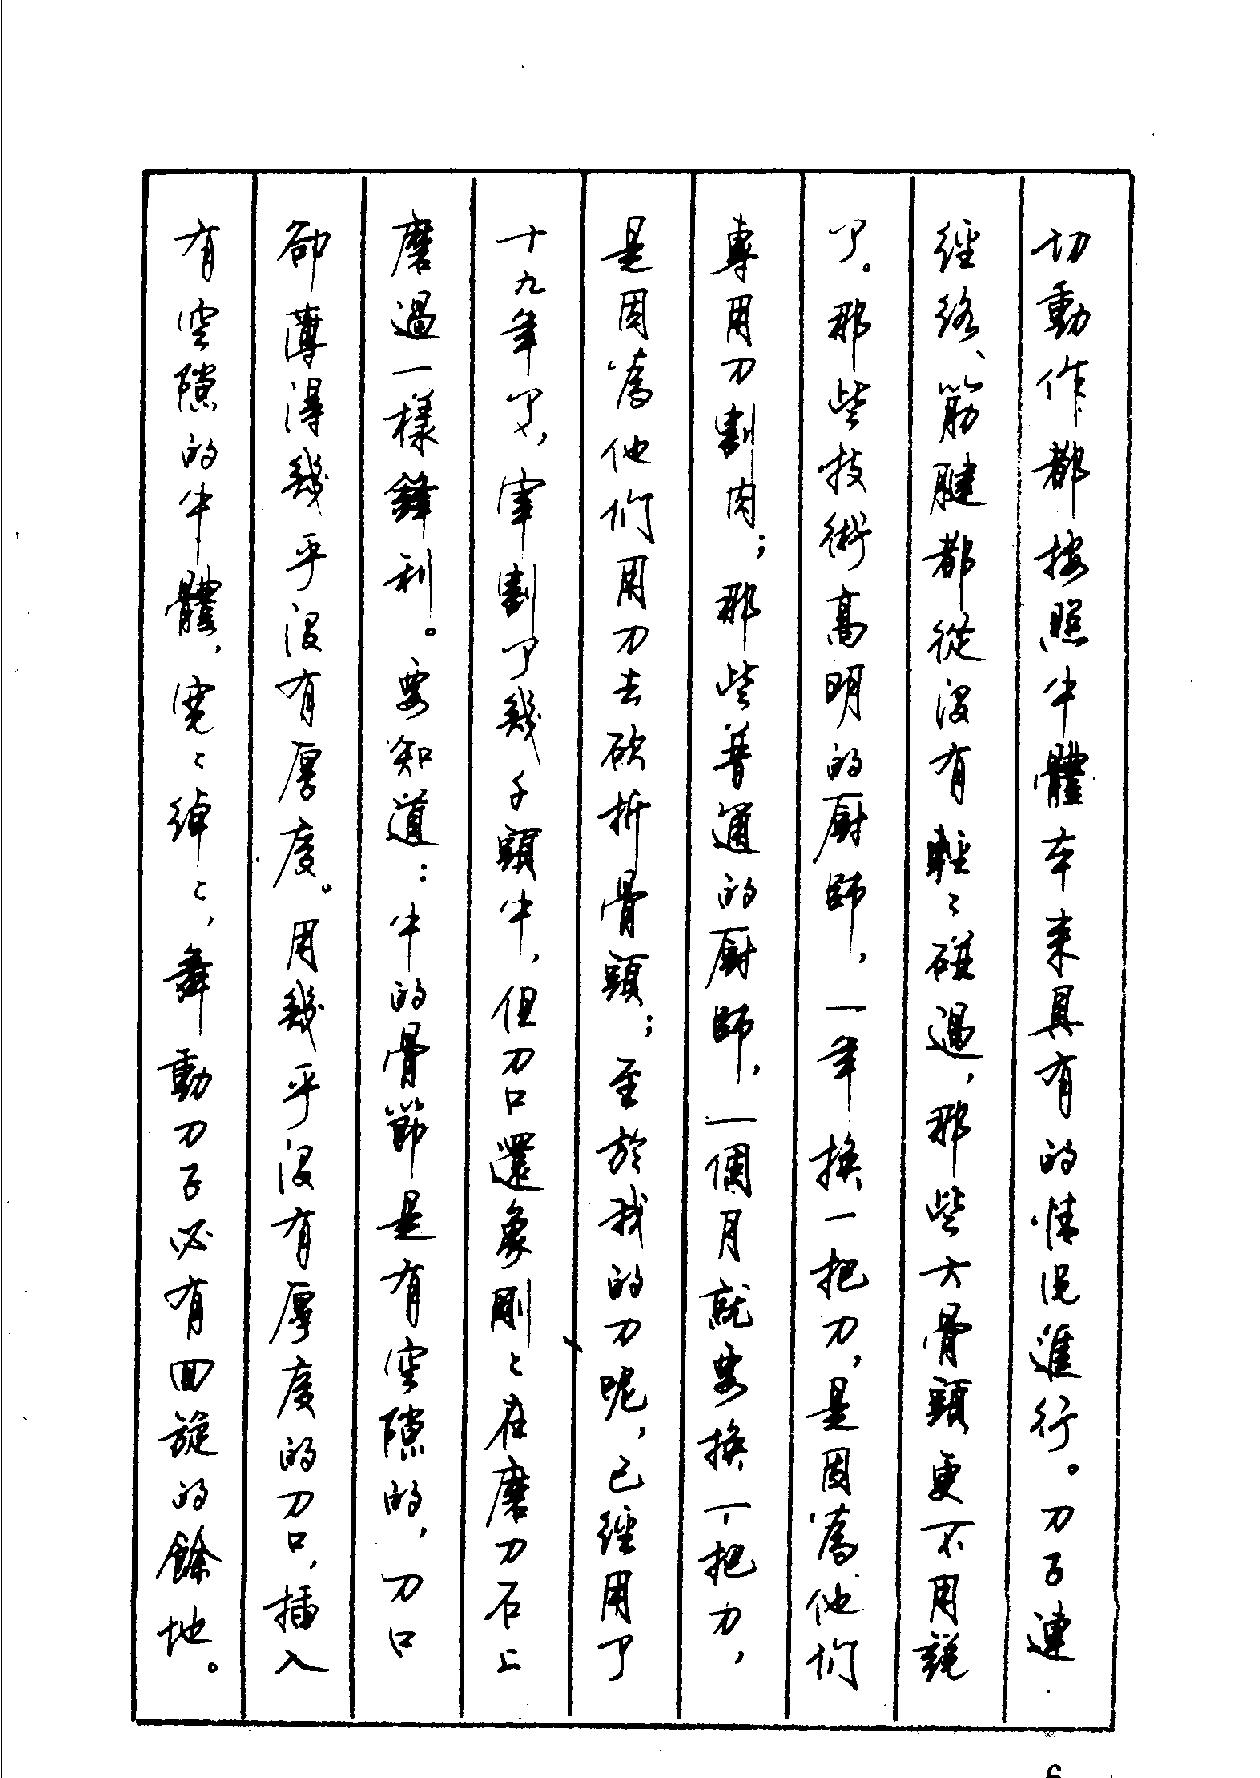 切動作都按照牛體本来具有的情况進行。刀子連
经络、筋腱都從没有輕〻碰過，那些大骨頭更不用説
了。那些技術高明的厨師，一年換一把刀，是因為他们
專用刀割肉；那些普通的厨師，一個月就要换一把刀，
是因為他们用刀去砍折骨頭；至於我的刀呢，已經用了
十九年了，宰割了幾千頭牛，但刀口還象剛〻在磨刀石上
磨過一樣鋒利。要知道：牛的骨節是有空隙的，刀口
卻薄得幾乎没有厚度。用幾乎没有厚度的刀口，插入
有空隙的牛體，寛〻綽〻，舞動刀子必有回旋的餘地。
6